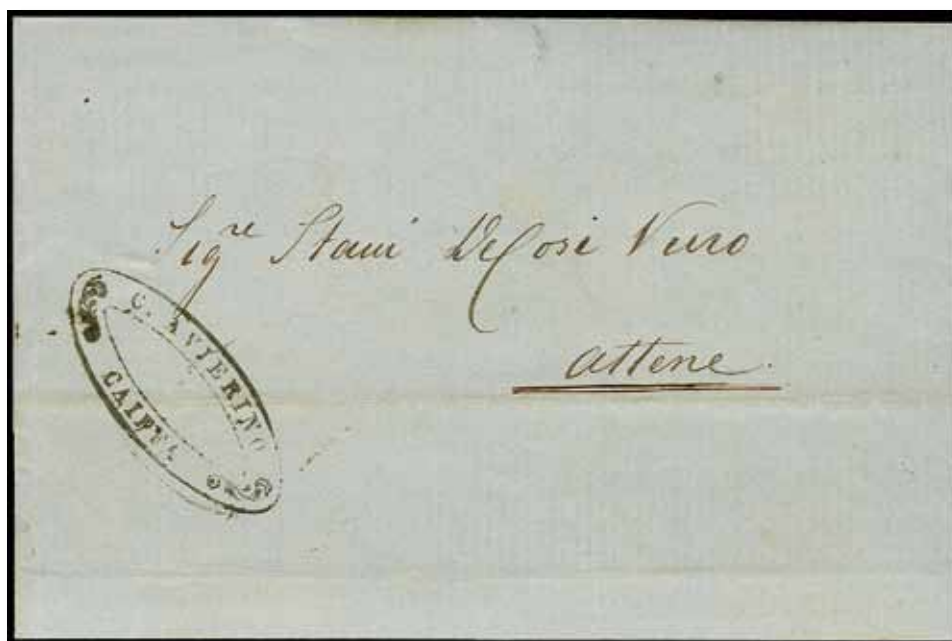 Sigre Stani DeCosi Vuro
Attene.
C. AVIERINO
CAIFFA